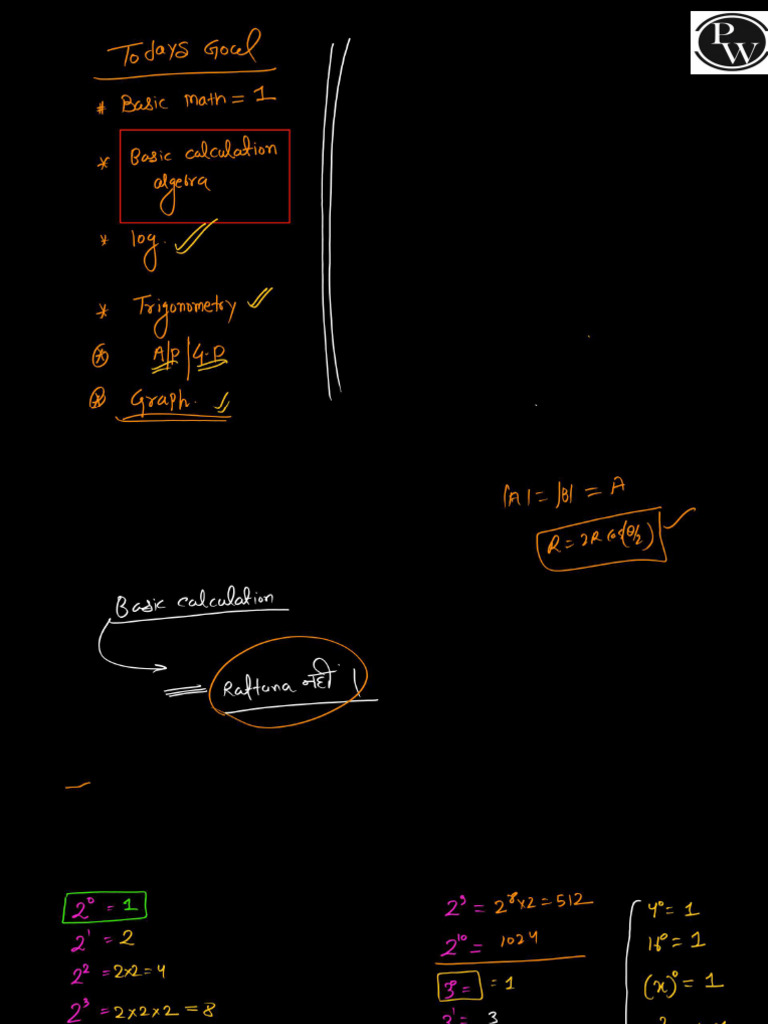 PW
Todays Goal
* Basic math = 1
* Basic calculation
algebra
* log.
* Trigonometry
* A/P | G.P
* Graph.
|A| = |B| = A
R = 2R cos(θ/2)
Basic calculation
= Rattana नहीं ।
2⁰ = 1
2¹ = 2
2² = 2×2=4
2³ = 2×2×2 = 8
2⁹ = 2⁸×2=512
2¹⁰ = 1024
3⁰ = = 1
3¹ = 3
4⁰ = 1
(x)⁰ = 1